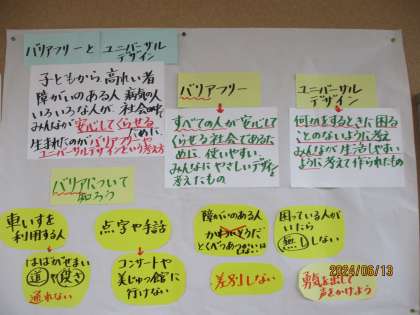 バリアフリーと ユニバーサル
デザイン
子どもから、高れい者
障がいのある人 病気の人
いろいろな人が、社会の中で
みんなが安心してくらせる
ために、
生まれたのがバリアフリーや
ユニバーサルデザインという考え方
バリアフリー
すべての人が安心して
くらせる社会であるた
めに、使いやすい、
みんなにやさしいデザインを
考えたもの
ユニバーサル
デザイン
何かをするときに困る
ことのないように考え
みんなが生活しやすい
ように考えて作られたもの
バリアについて
知ろう
車いすを
利用する人
はばがせまい
道や段さ
通れない
点字や手話
コンサートや
美じゅつ館に
行けない
障がいのある人
かわいそうだ
とくべつあつかいはしない
差別しない
困っている人が
いたら
無しない
勇気を出して
声をかけよう
2024/06/13